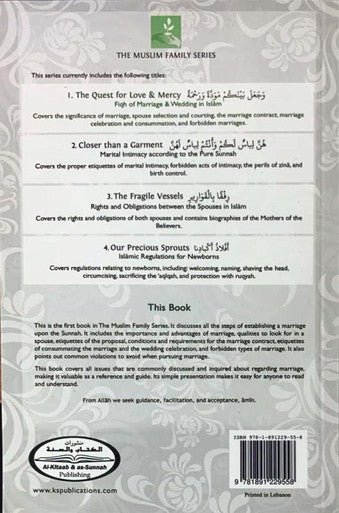 THE MUSLIM FAMILY SERIES
This series currently includes the following titles:
1. The Quest for Love & Mercy وَجَعَلَ بَيْنَكُم مَوَدَّةً وَرَحْمَةً
Fiqh of Marriage & Wedding in Islâm
Covers the significance of marriage, spouse selection and courting, the marriage contract, marriage
celebration and consummation, and forbidden marriages.
2. Closer than a Garment هُنَّ لِبَاسٌ لَكُمْ وَأَنْتُمْ لِبَاسٌ لَهُنَّ
Marital Intimacy according to the Pure Sunnah
Covers the proper etiquettes of marital intimacy, forbidden acts of intimacy, the perils of zinâ, and
birth control.
3. The Fragile Vessels رِفْقًا بِالْقَوَارِيرِ
Rights and Obligations between the Spouses in Islâm
Covers the rights and obligations of both spouses and contains biographies of the Mothers of the
Believers.
4. Our Precious Sprouts أَفْلَاذُ أَكْبَادِنَا
Islâmic Regulations for Newborns
Covers regulations relating to newborns, including: welcoming, naming, shaving the head,
circumcising, sacrificing the 'aqîqah, and protection with ruqyah.
This Book
This is the first book in The Muslim Family Series. It discusses all the steps of establishing a marriage
upon the Sunnah. It includes the importance and advantages of marriage, qualities to look for in a
spouse, etiquettes of the proposal, conditions and requirements for the marriage contract, etiquettes
of consummating the marriage and the wedding celebration, and forbidden types of marriage. It also
points out common violations to avoid when pursuing marriage.
This book covers all issues that are commonly discussed and inquired about regarding marriage,
making it valuable as a reference and guide. Its simple presentation makes it easy for anyone to read
and understand.
From Allâh we seek guidance, facilitation, and acceptance, âmîn.
منشورات
الكتاب والسنة
Al-Kitaab & as-Sunnah
Publishing
www.kspublications.com
ISBN 978-1-891229-55-8
9 781891 229558
Printed in Lebanon